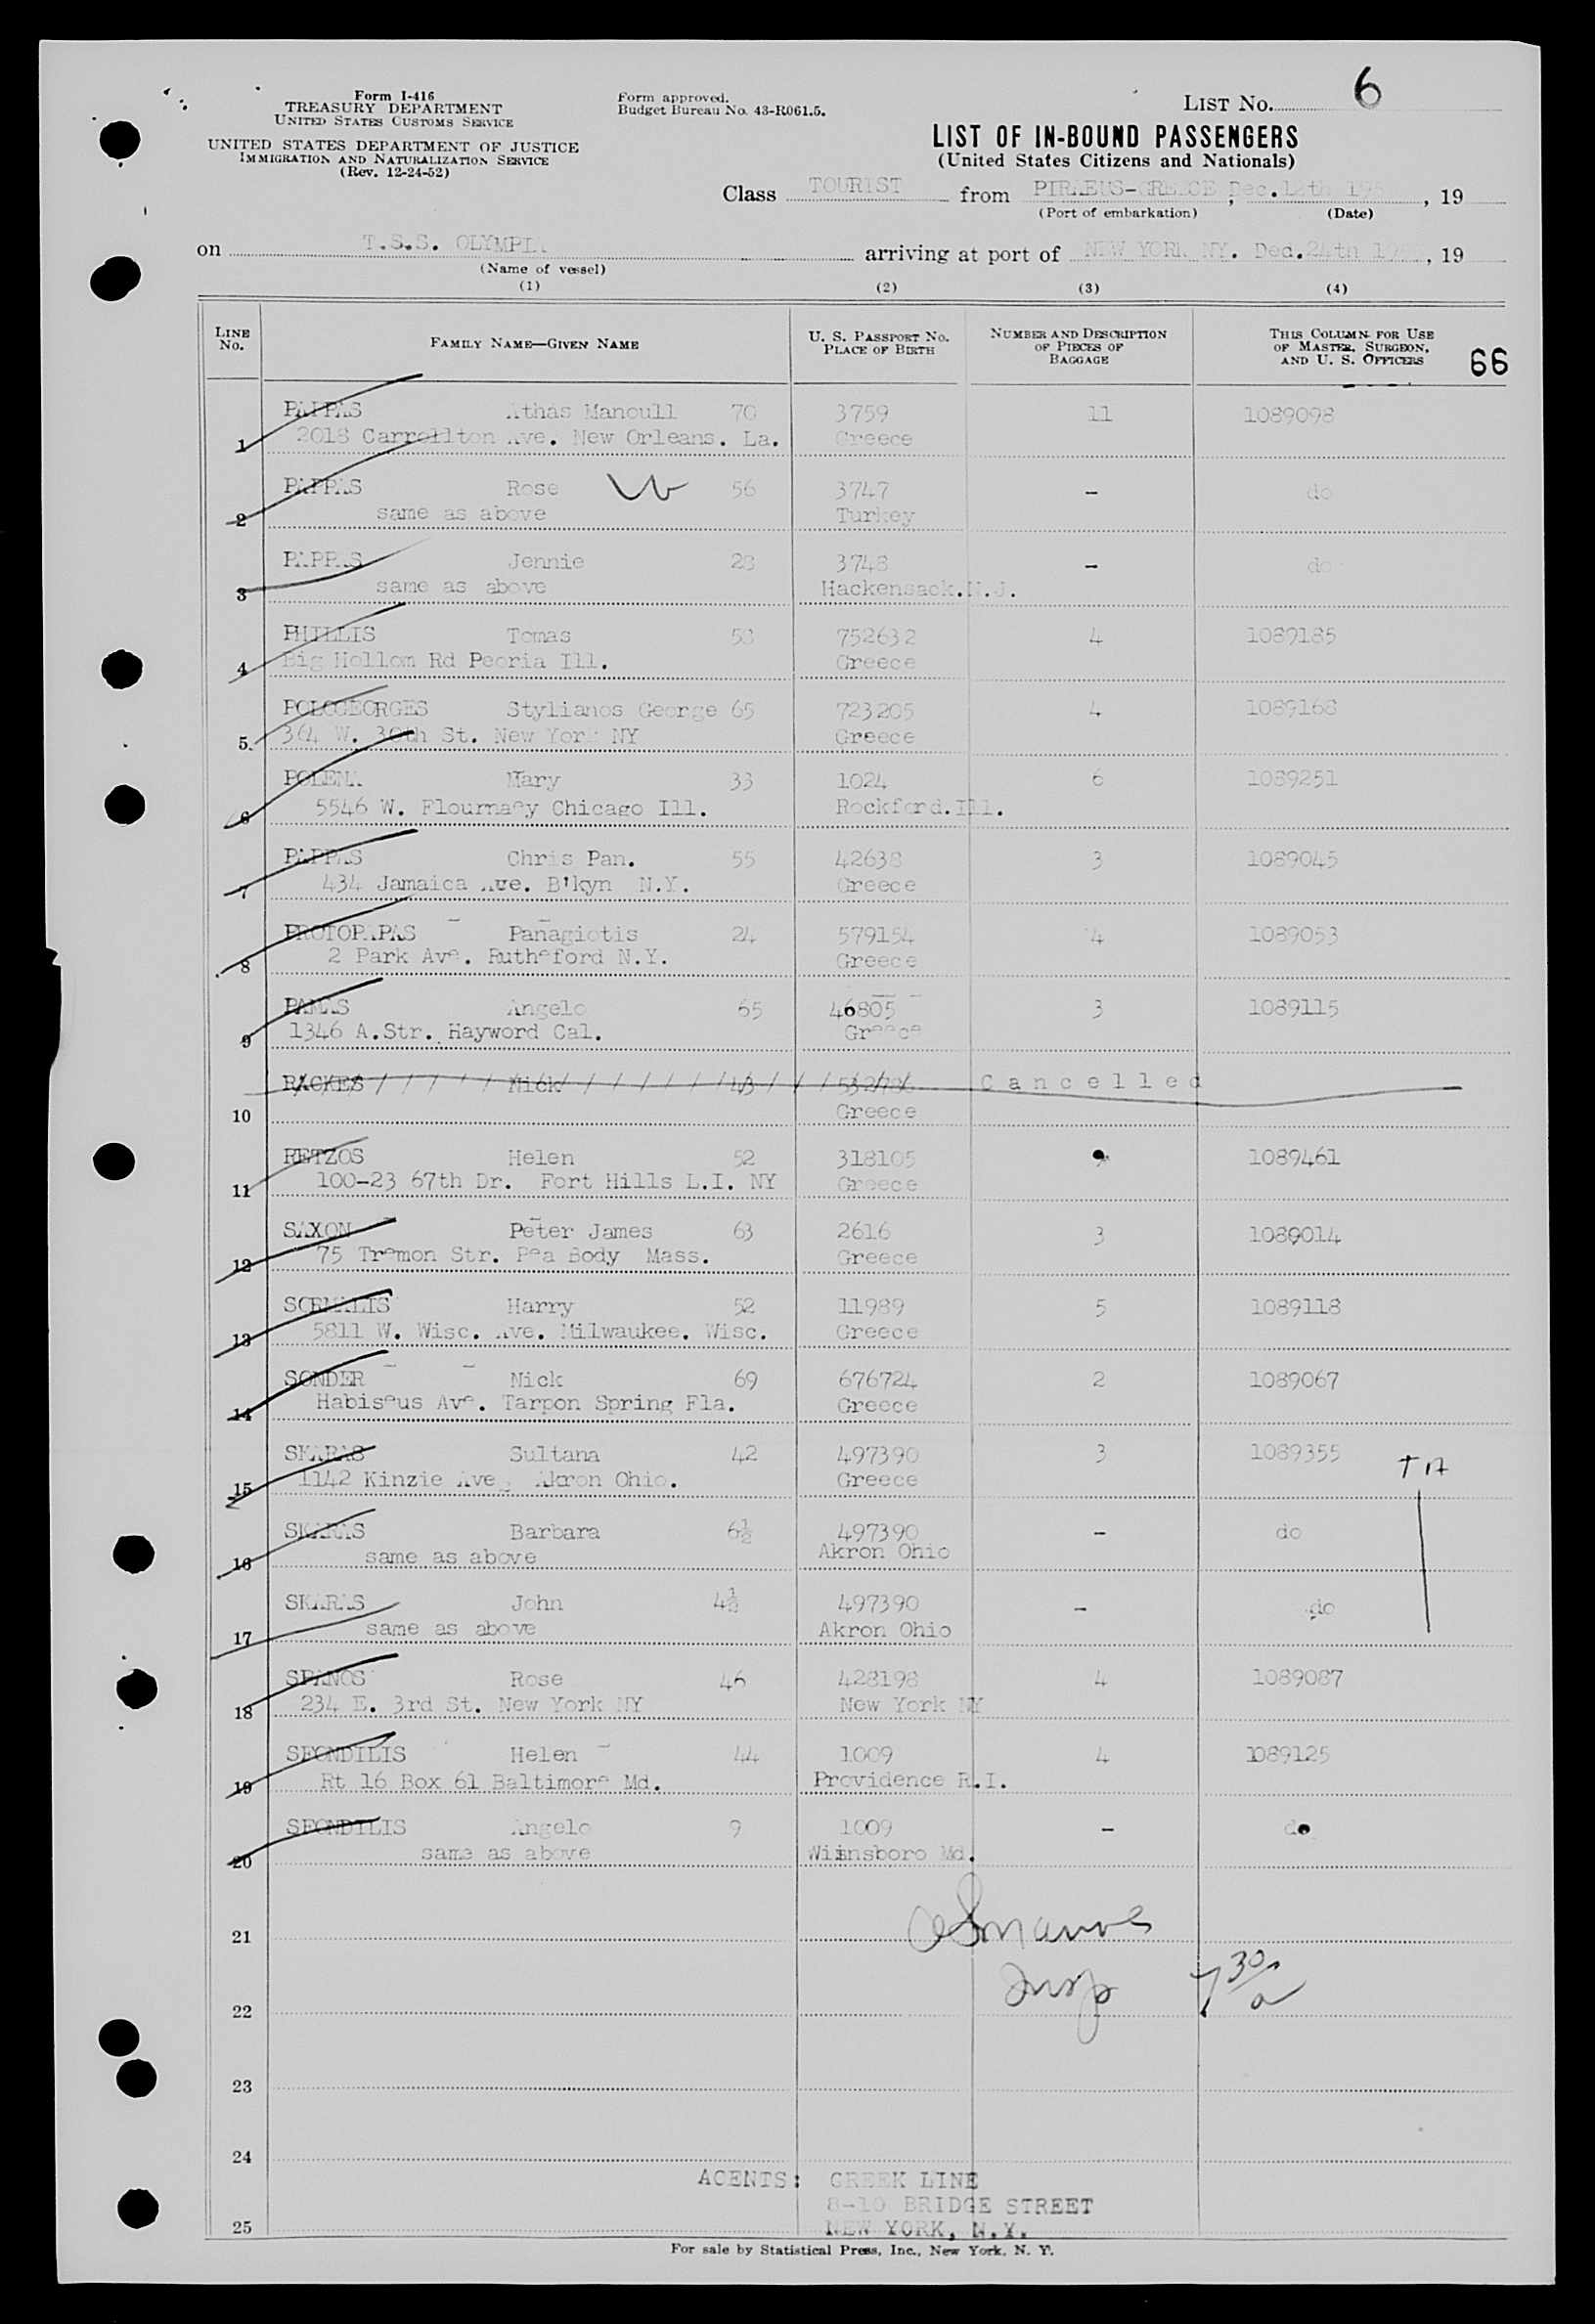 Form I-416
TREASURY DEPARTMENT
UNITED STATES CUSTOMS SERVICE
UNITED STATES DEPARTMENT OF JUSTICE
IMMIGRATION AND NATURALIZATION SERVICE
(Rev. 12-24-52)
Form approved.
Budget Bureau No. 43-R061.5.
LIST No. 6
LIST OF IN-BOUND PASSENGERS
(United States Citizens and Nationals)
Class TOURIST from PIRAEUS-GREECE, Dec. 12th 195 , 19
(Port of embarkation) (Date)
on T.S.S. OLYMPIA arriving at port of NEW YORK NY. Dec. 24th 195 , 19
(Name of vessel)
(1) (2) (3) (4)
LINE No. FAMILY NAME—GIVEN NAME U. S. PASSPORT No. PLACE OF BIRTH NUMBER AND DESCRIPTION OF PIECES OF BAGGAGE THIS COLUMN FOR USE OF MASTER, SURGEON, AND U. S. OFFICERS 66
PAPPAS Athas Manoull 70 3759 11 1089098
1 2018 Carrollton Ave. New Orleans. La. Greece
PAPPAS Rose 56 3747 – do
2 same as above Turkey
PAPPAS Jennie 28 3748 – do
3 same as above Hackensack.N.J.
PHILLIS Tomas 58 752632 4 1089185
4 Big Hollom Rd Peoria Ill. Greece
POLOGEORGES Stylianos George 65 723205 4 1089168
5 364 W. 30th St. New York NY Greece
POLENA Mary 33 1024 6 1089251
6 5546 W. Flournaey Chicago Ill. Rockford.Ill.
PAPPAS Chris Pan. 55 42638 3 1089045
7 434 Jamaica Ave. B'kyn N.Y. Greece
PROTOPAPAS Panagiotis 24 579154 4 1089053
8 2 Park Ave. Rutheford N.Y. Greece
Angelo 65 46805 3 1089115
9 1346 A.Str. Hayword Cal. Greece
RACKES Nick 43 Cancelled
10 Greece
RETZOS Helen 52 318105 1089461
11 100-23 67th Dr. Fort Hills L.I. NY Greece
SAXON Peter James 63 2616 3 1089014
12 75 Tremon Str. Pea Body Mass. Greece
Harry 52 11989 5 1089118
13 5811 W. Wisc. Ave. Milwaukee. Wisc. Greece
SONDER Nick 69 676724 2 1089067
14 Habiseus Ave. Tarpon Spring Fla. Greece
SKARAS Sultana 42 497390 3 1089355
15 1142 Kinzie Ave, Akron Ohio. Greece
SKARAS Barbara 6½ 497390 – do
16 same as above Akron Ohio
SKARAS John 4½ 497390 – do
17 same as above Akron Ohio
SPANOS Rose 46 428198 4 1089087
18 234 E. 3rd St. New York NY New York NY
SFONDILIS Helen 44 1009 4 1089125
19 Rt 16 Box 61 Baltimore Md. Providence R.I.
SFONDILIS Angelo 9 1009 – do
20 same as above Wiinsboro Md.
21
Insp 7 30/a
22
23
24
AGENTS: GREEK LINE
8-10 BRIDGE STREET
25 NEW YORK, N.Y.
For sale by Statistical Press, Inc., New York, N. Y.